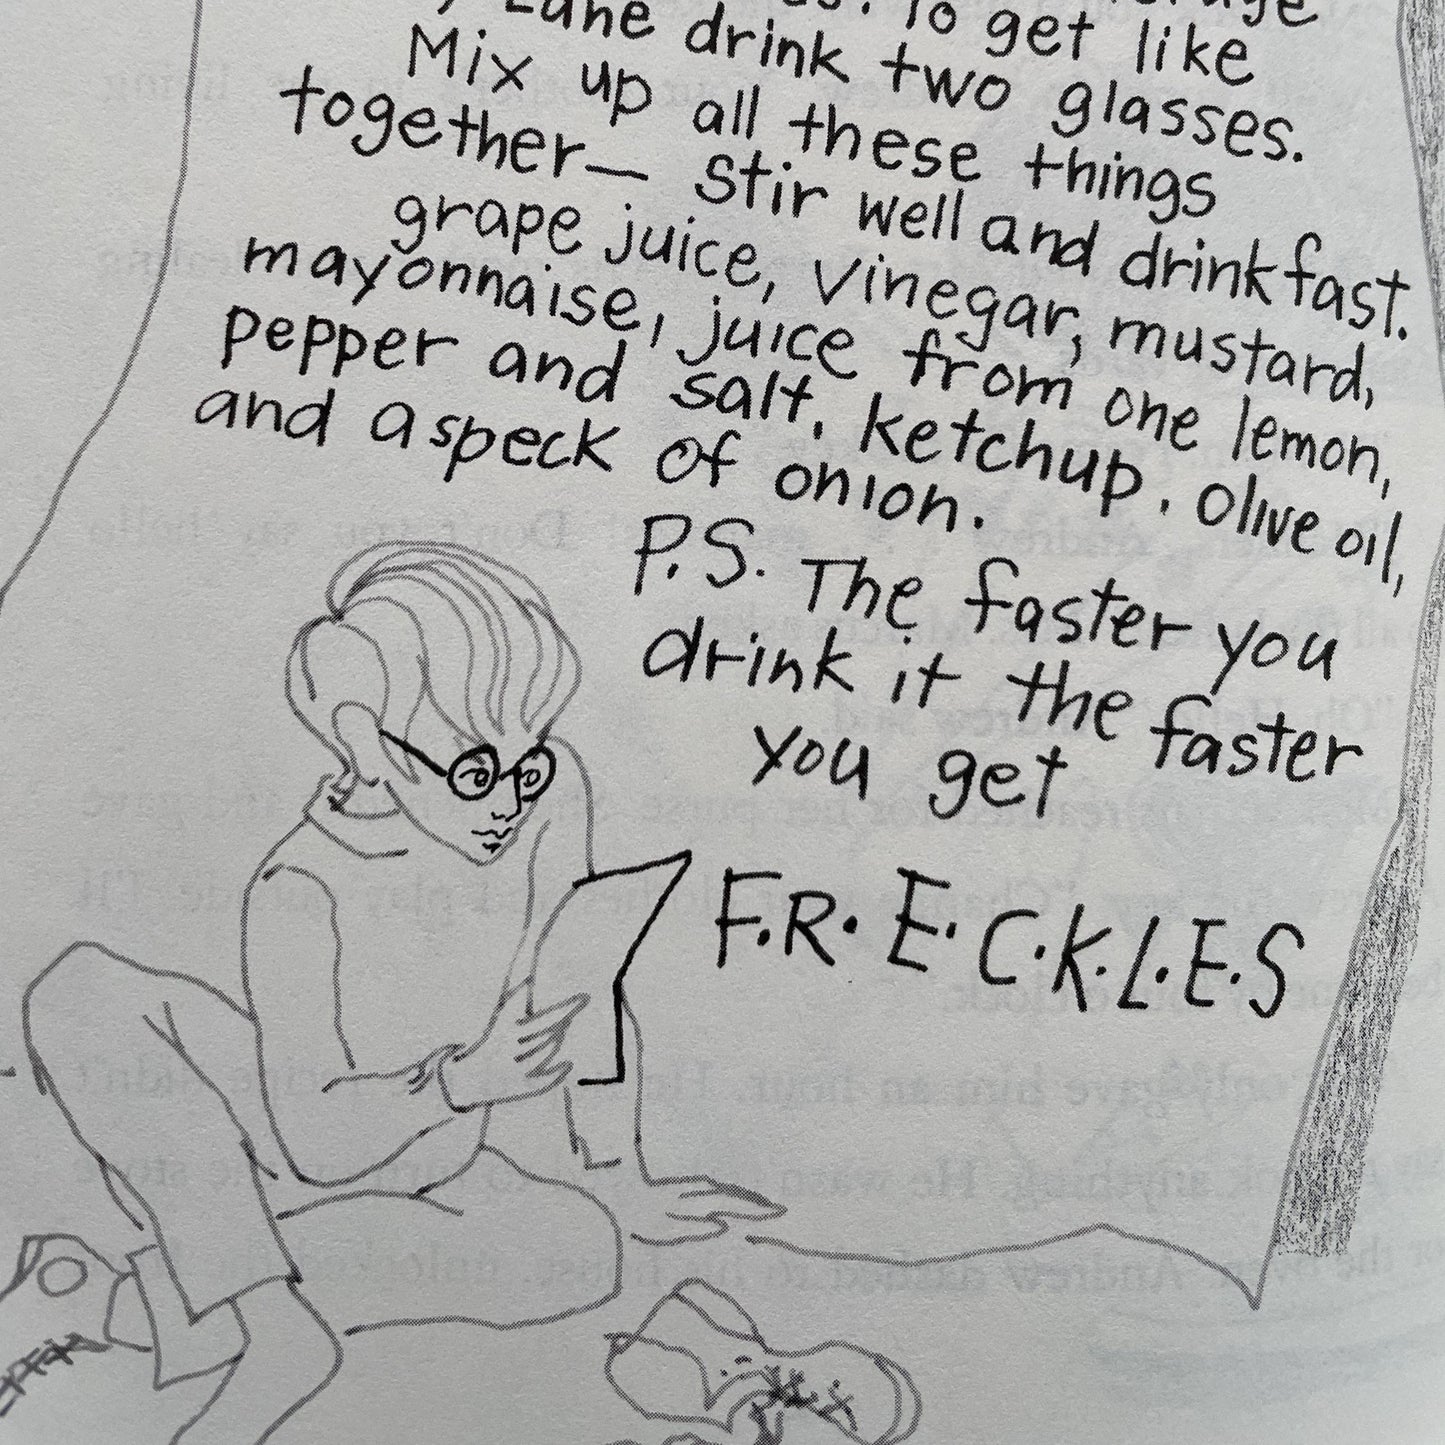 To get like
Lane drink two glasses.
Mix up all these things
together— Stir well and drink fast.
grape juice, vinegar, mustard,
mayonnaise, juice from one lemon,
pepper and salt, ketchup, olive oil,
and a speck of onion.
P.S. The faster you
drink it the faster
you get
F.R.E.C.K.L.E.S